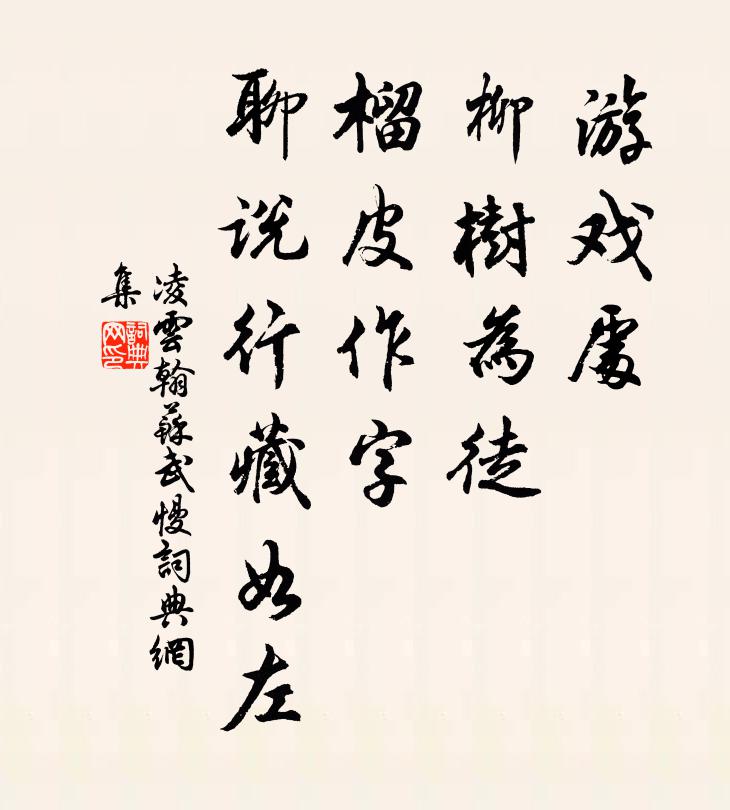 游戏處
柳樹為徒
榴皮作字
聊说行藏如左
凌雲翰蘇武慢詞典網
集
詞典网印